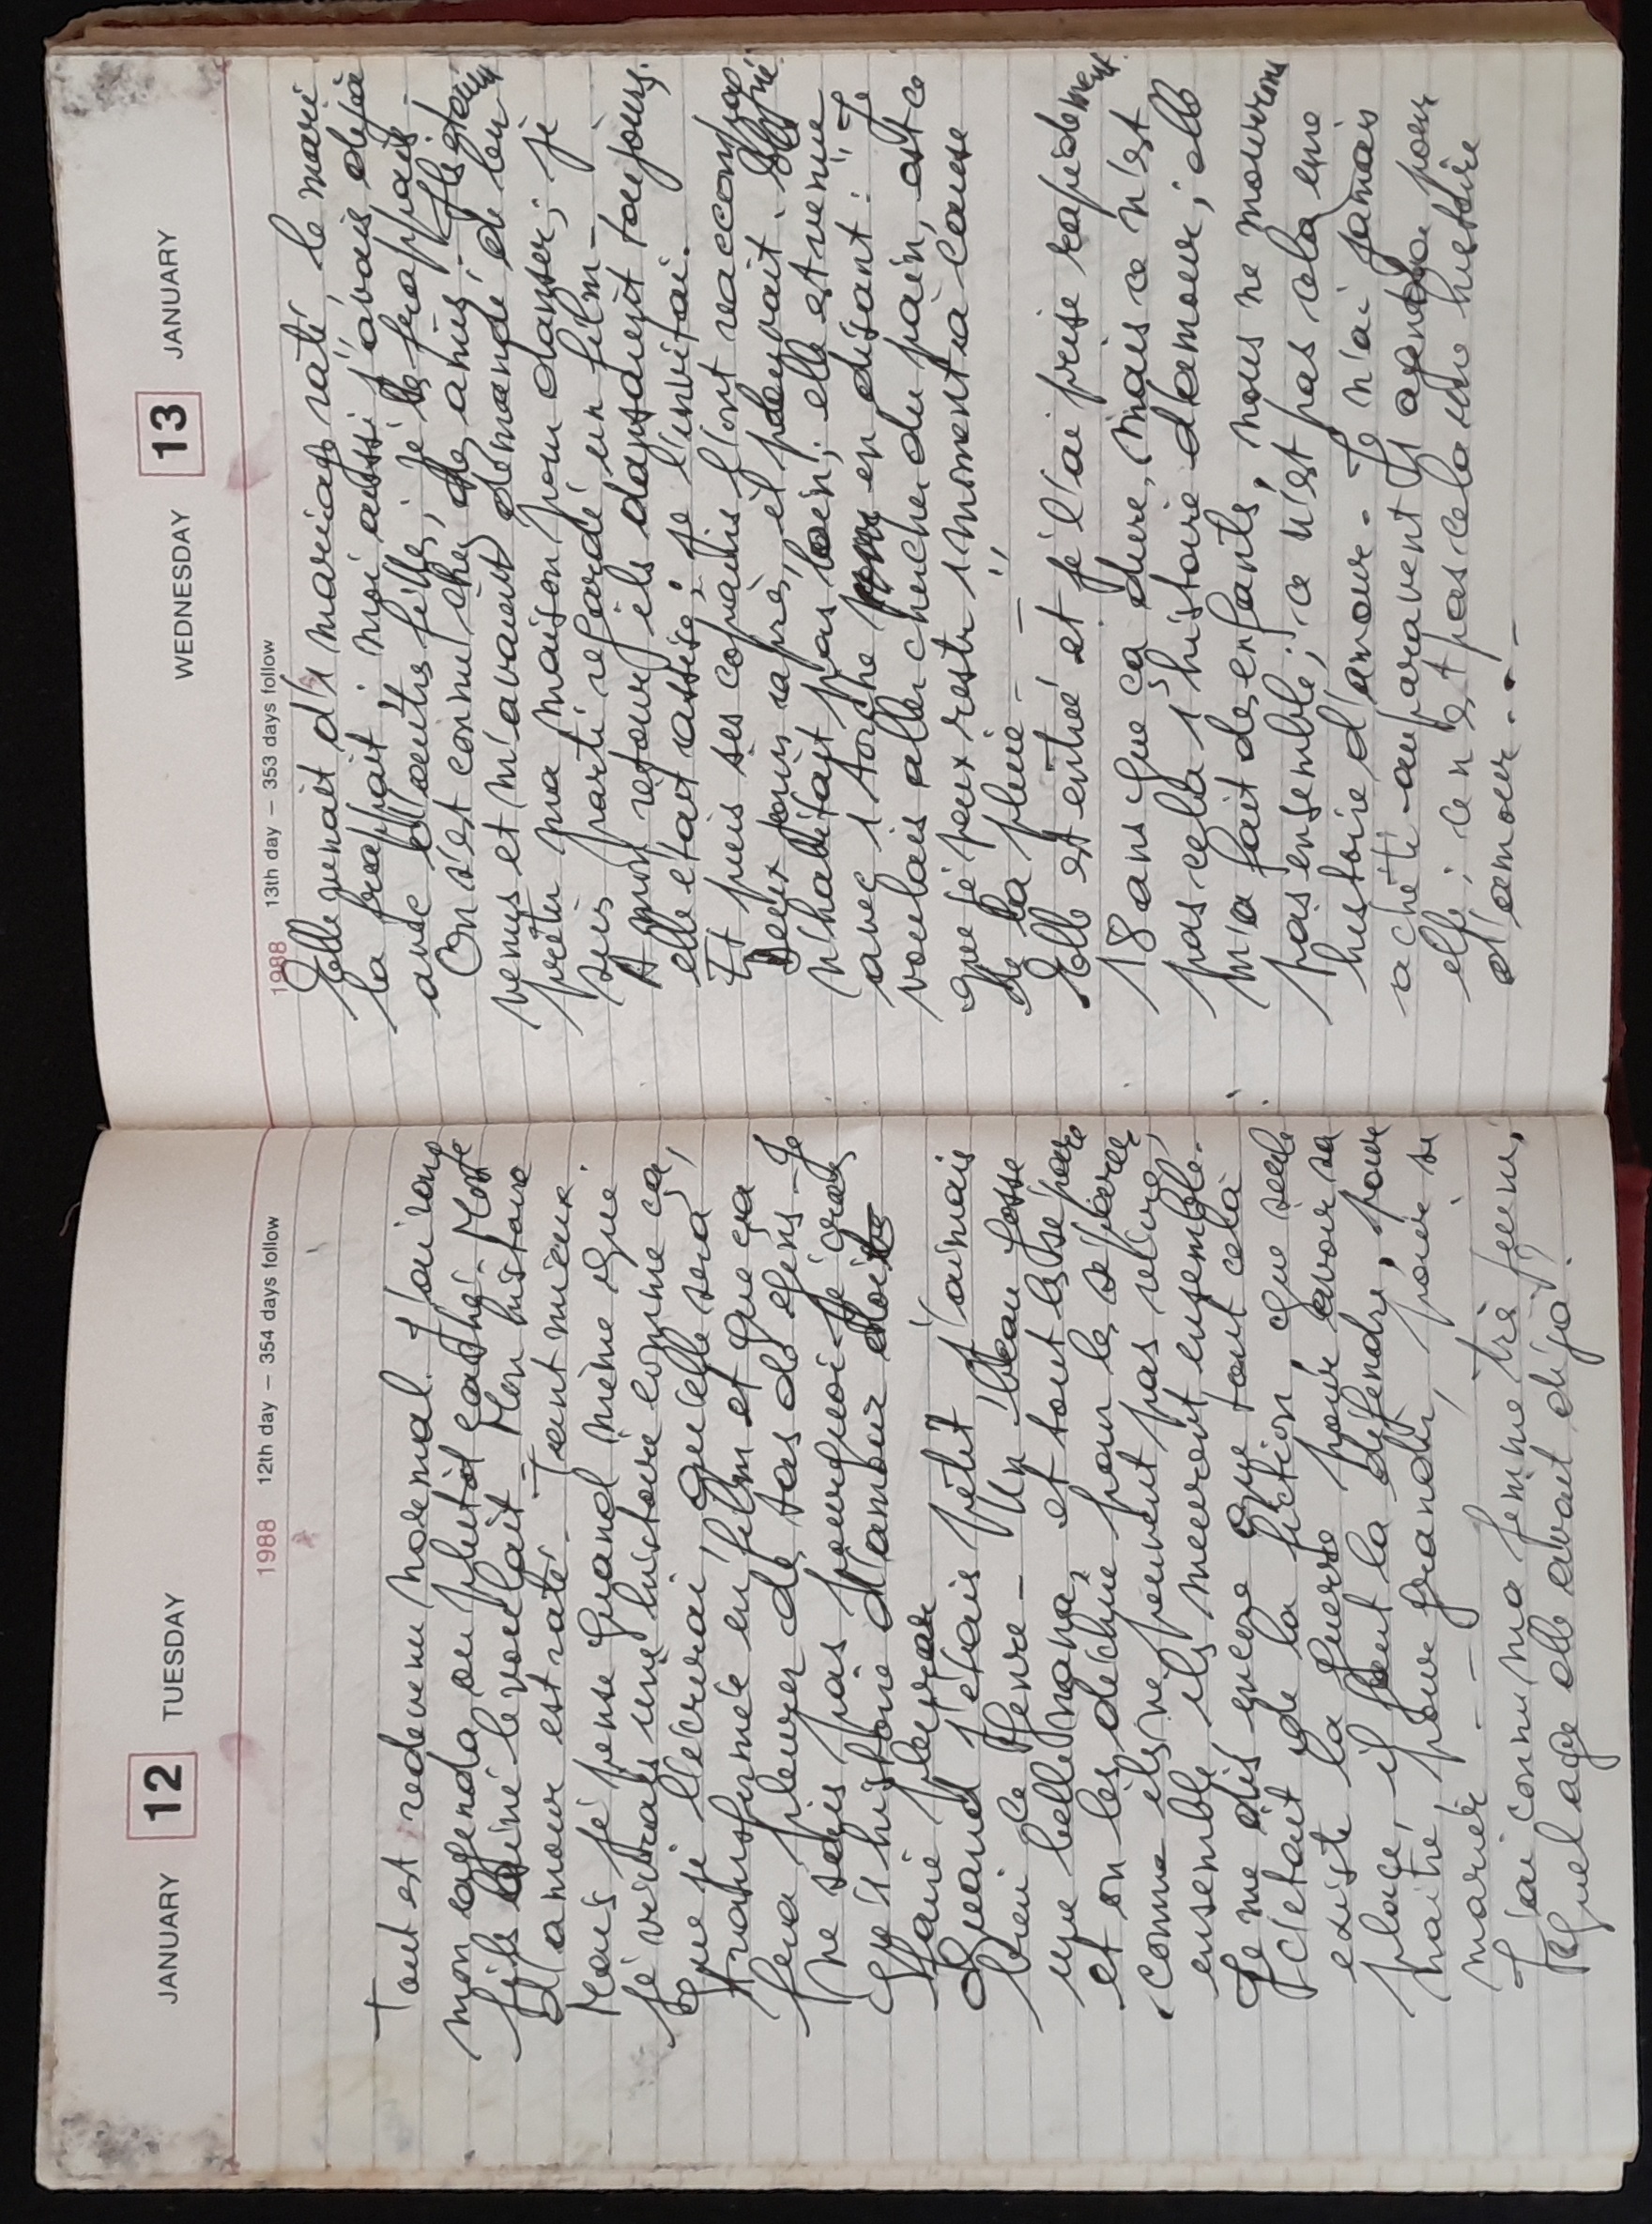 JANUARY 12 TUESDAY
1988 12th day – 354 days follow
Tout est redevenu normal. J'ouvrais
mon agenda ou plutôt cahier. Mon
fils aîné le voulait – Mon histoire
d'amour est ratée – Tant mieux.
Mais je pense quand même que
je vivrais une histoire comme ça,
que je l'écrirai, qu'elle sera
transformée en film et que ça
fera pleurer des tas de gens – Je
ne sais pas pourquoi – je crois
qu'1 histoire d'amour doit
faire pleurer
Quand j'étais petit j'aimais
bien ce genre – Un beau gosse
une belle nana, et tout les sépare
et on les déchire pour les séparer
comme ils ne peuvent pas vivre
ensemble, ils meurent ensemble.
Je me dis encore que tout cela
c'était de la fiction, que seule
existe la guerre pour avoir sa
place, il faut la défendre, pour
naître, pour grandir, pour se
marier – –
J'ai connu ma femme très jeune,
quel age elle avait déjà?
WEDNESDAY 13 JANUARY
1988 13th day – 353 days follow
Elle venait d'1 mariage raté, le mari
la frappait; moi aussi j'avais déjà
avec d'autres filles; je les frappais –
On s'est connu chez des amis – Ils étaient
venus et m'avaient demandé de leur
prêter ma maison pour danser; je
suis parti regarder un film –
A mon retour ils dansaient toujours.
elle était assise; je l'invitai.
Et puis ses copains l'ont raccompagné
Deux jours après, il pleuvait. Elle
n'habitait pas loin; elle est venue
avec 1 torche en disant: "Je
voulais aller chercher du pain, est ce
que je peux rester 1 moment à cause
de la pluie"
Elle est entrée et je l'ai prise rapidement
18 ans que ça dure, mais ce n'est
pas cela 1 histoire d'amour; elle
m'a fait des enfants, nous ne mourrons
pas ensemble; ce n'est pas cela une
histoire d'amour – Je n'ai jamais
acheté auparavent 1 agenda pour
elle; ce n'est pas cela une histoire
d'amour...